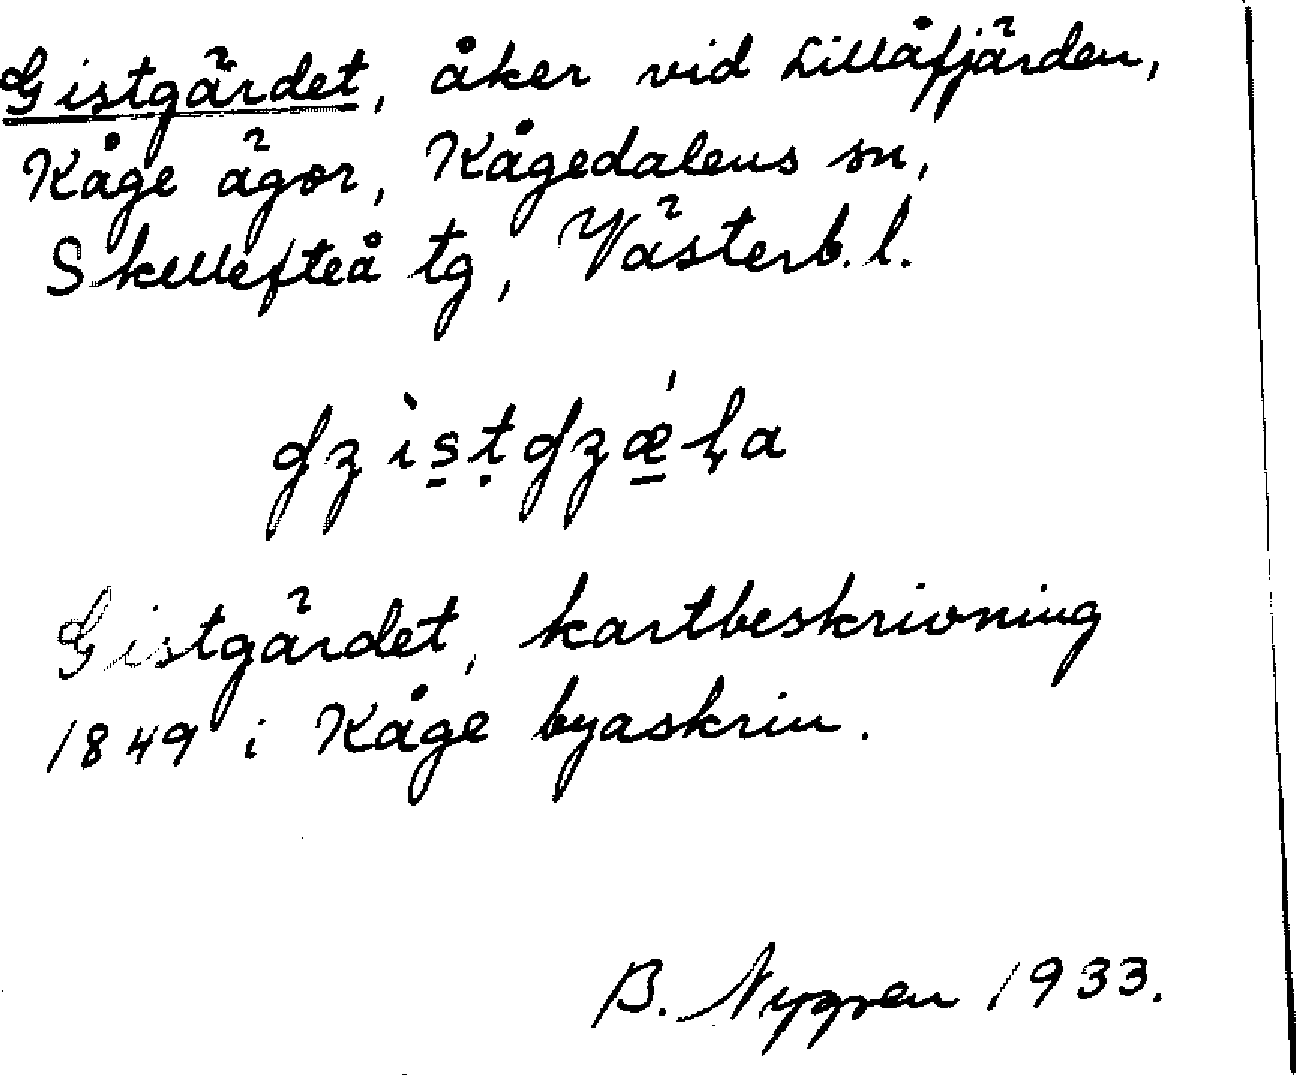 Gistgärdet, åker vid Lillåfjärden,
Kåge ägor, Kågedalens sn,
Skellefteå tg, Västerb. l.
Gistgärdet, kartbeskrivning
1849 i Kåge byaskrin.
B. Nygren 1933.